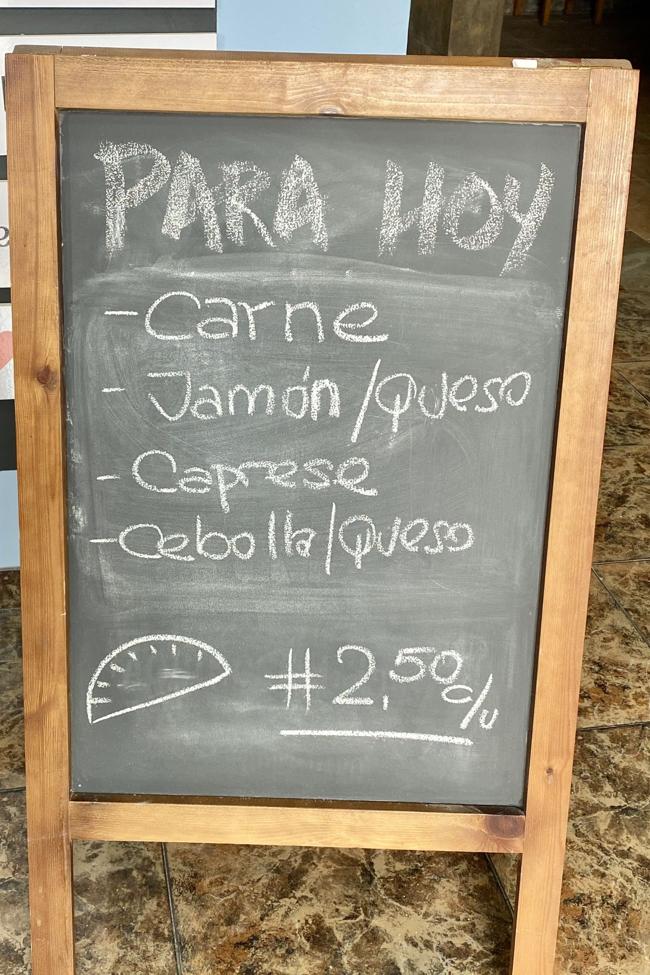 PARA HOY
- Carne
- Jamón/Queso
- Caprese
- Cebolla/Queso
#2,50 c/u